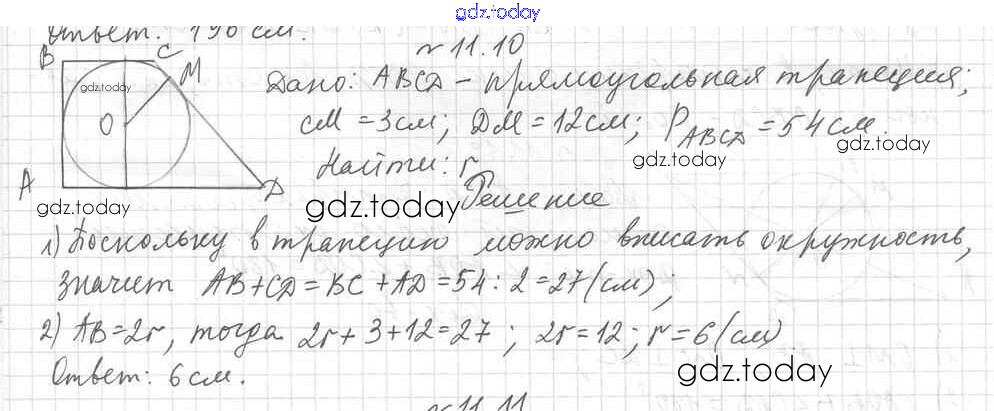 gdz.today
Ответ: 196 см.
№ 11.10
B
C
M
gdz.today
O
A
D
Дано: ABCD - прямоугольная трапеция;
CM = 3см; DM = 12см; P ABCD = 54 см.
gdz.today
gdz.today
Найти: r
gdz.today
gdz.today
Решение
1) Поскольку в трапецию можно вписать окружность,
значит AB + CD = BC + AD = 54 : 2 = 27 (см);
2) AB = 2r, тогда 2r + 3 + 12 = 27; 2r = 12; r = 6 (см)
Ответ: 6 см.
gdz.today
№ 11.11